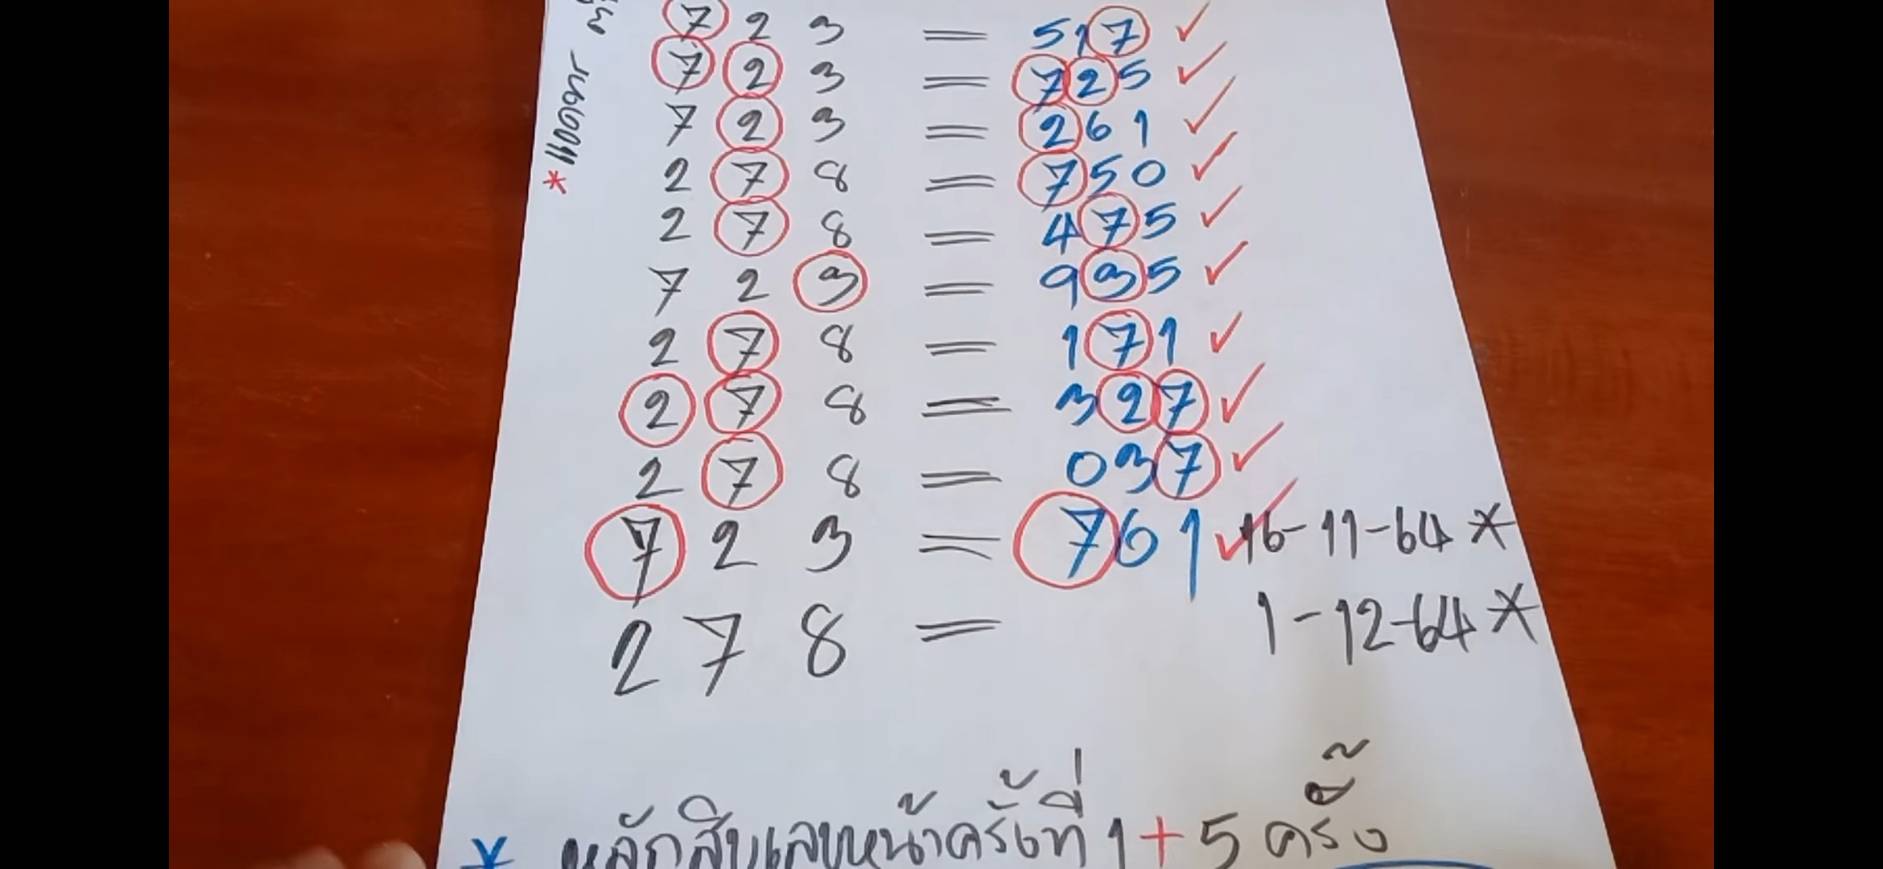 7 2 3 = 517 ✓
7 2 3 = 725 ✓
7 2 3 = 261 ✓
2 7 8 = 750 ✓
2 7 8 = 475 ✓
7 2 3 = 935 ✓
2 7 8 = 171 ✓
2 7 8 = 327 ✓
2 7 8 = 037 ✓
7 2 3 = 761 ✓ 16-11-64 *
2 7 8 = 1-12-64 *
* หลักสิบเลขหน้าครั้งที่ 1 + 5 ครั้ง